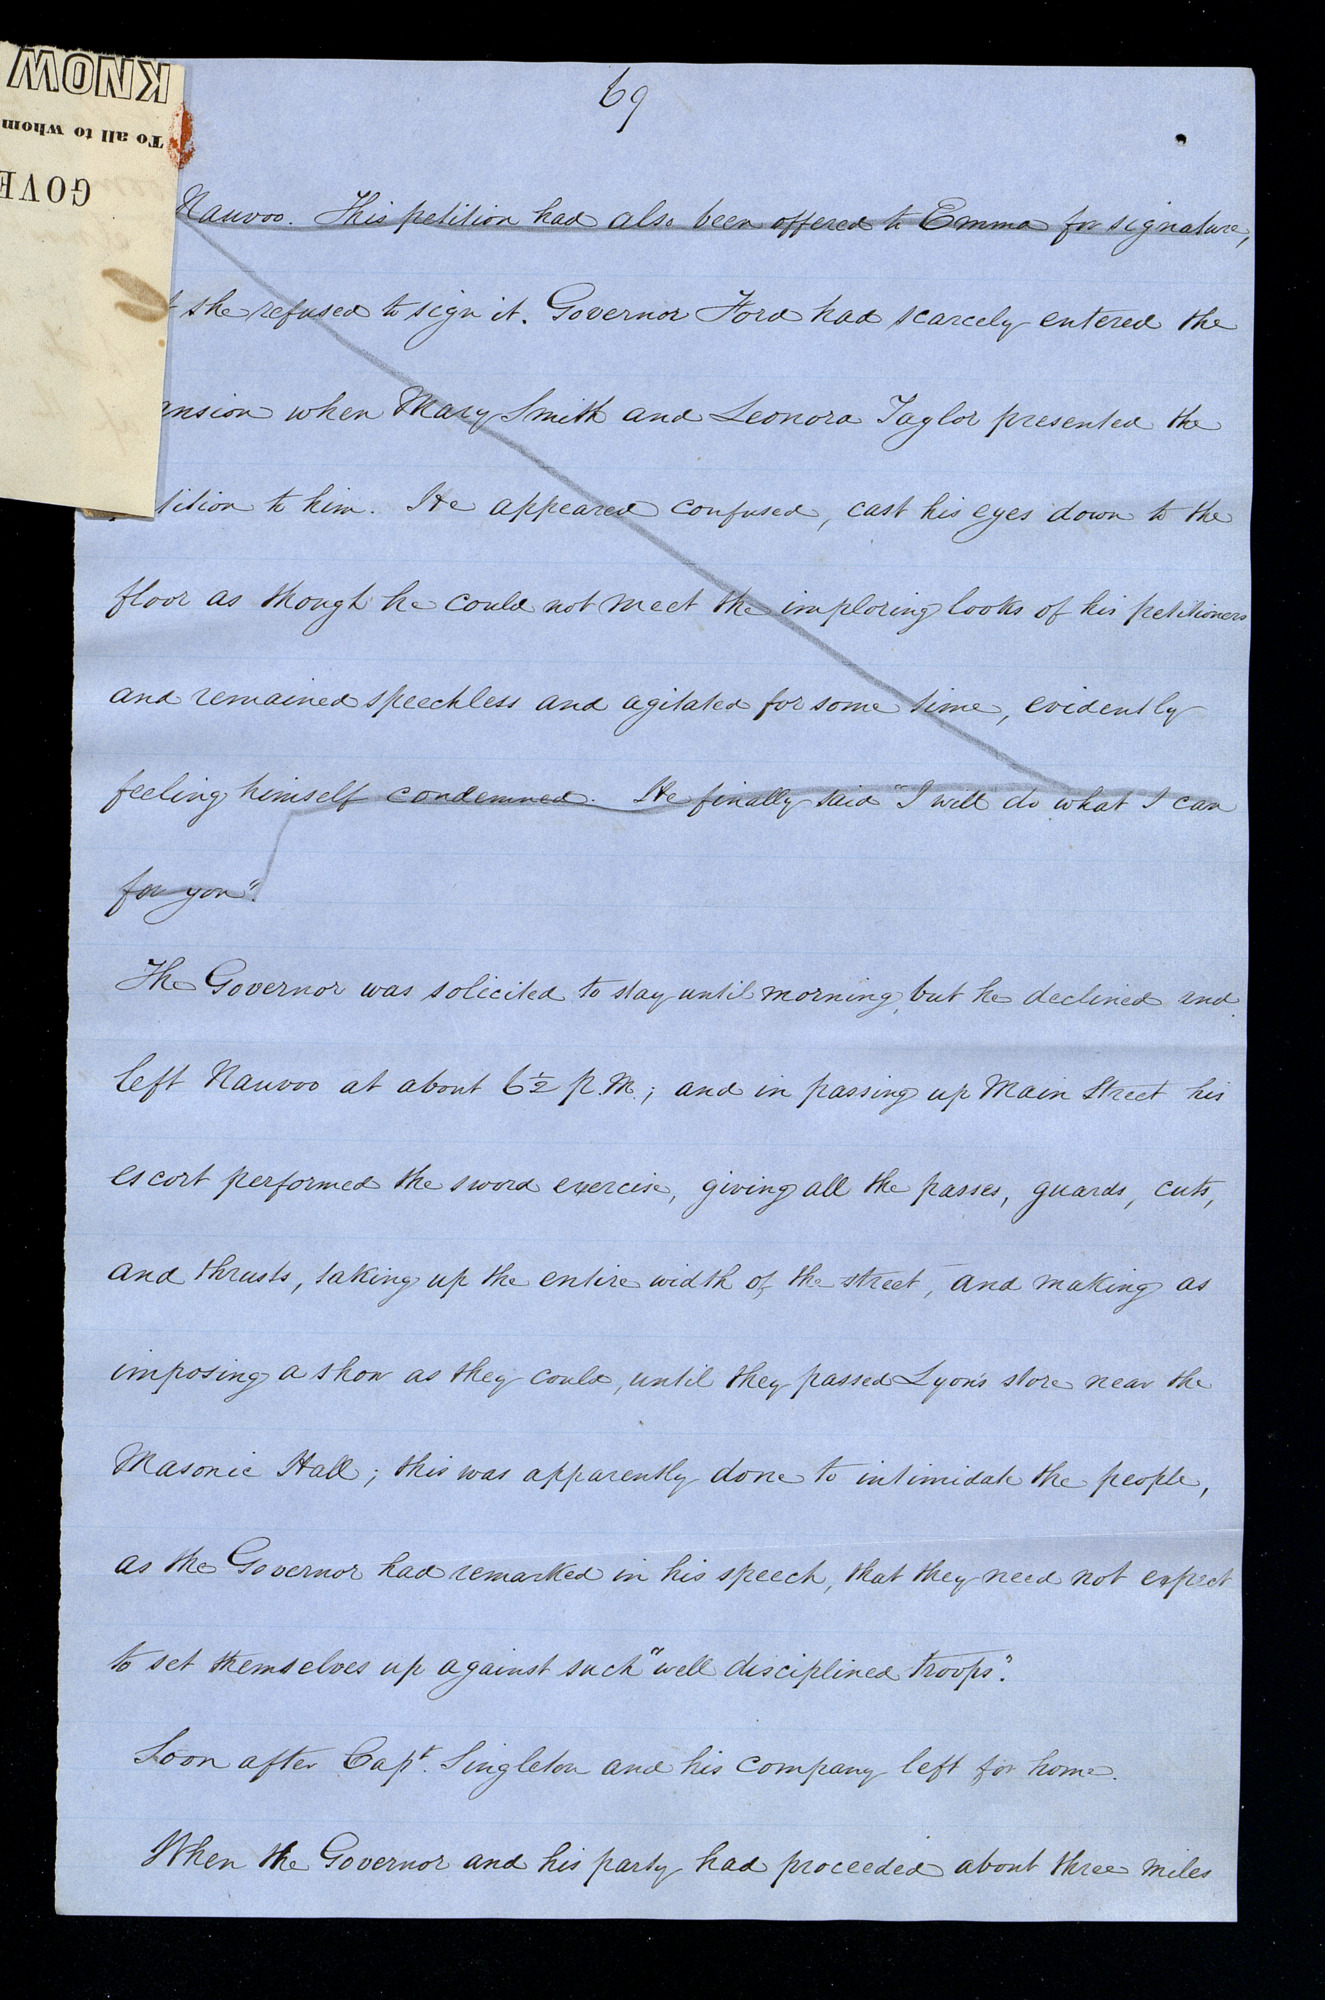 69
KNOW
To all to whom
GOVE
Nauvoo. This petition had also been offered to Emma for signature,
she refused to sign it. Governor Ford had scarcely entered the
ansion when Mary Smith and Leonora Taylor presented the
tition to him. He appeared confused, cast his eyes down to the
floor as though he could not meet the imploring looks of his petitioners
and remained speechless and agitated for some time, evidently
feeling himself condemned. He finally said "I will do what I can
for you".
The Governor was solicited to stay until morning, but he declined and
left Nauvoo at about 6½ p.m.; and in passing up Main Street his
escort performed the sword exercise, giving all the passes, guards, cuts,
and thrusts, taking up the entire width of the street, and making as
imposing a show as they could, until they passed Lyon's store near the
Masonic Hall; this was apparently done to intimidate the people,
as the Governor had remarked in his speech, that they need not expect
to set themselves up against such "well disciplined troops".
Soon after Capt. Singleton and his company left for home.
When the Governor and his party had proceeded about three miles